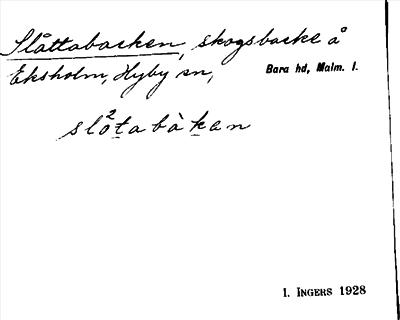 Slåttabacken, skogsbacke å
Eksholm, Hyby sn, Bara hd, Malm. l.
slo²tabàkan
I. INGERS 1928